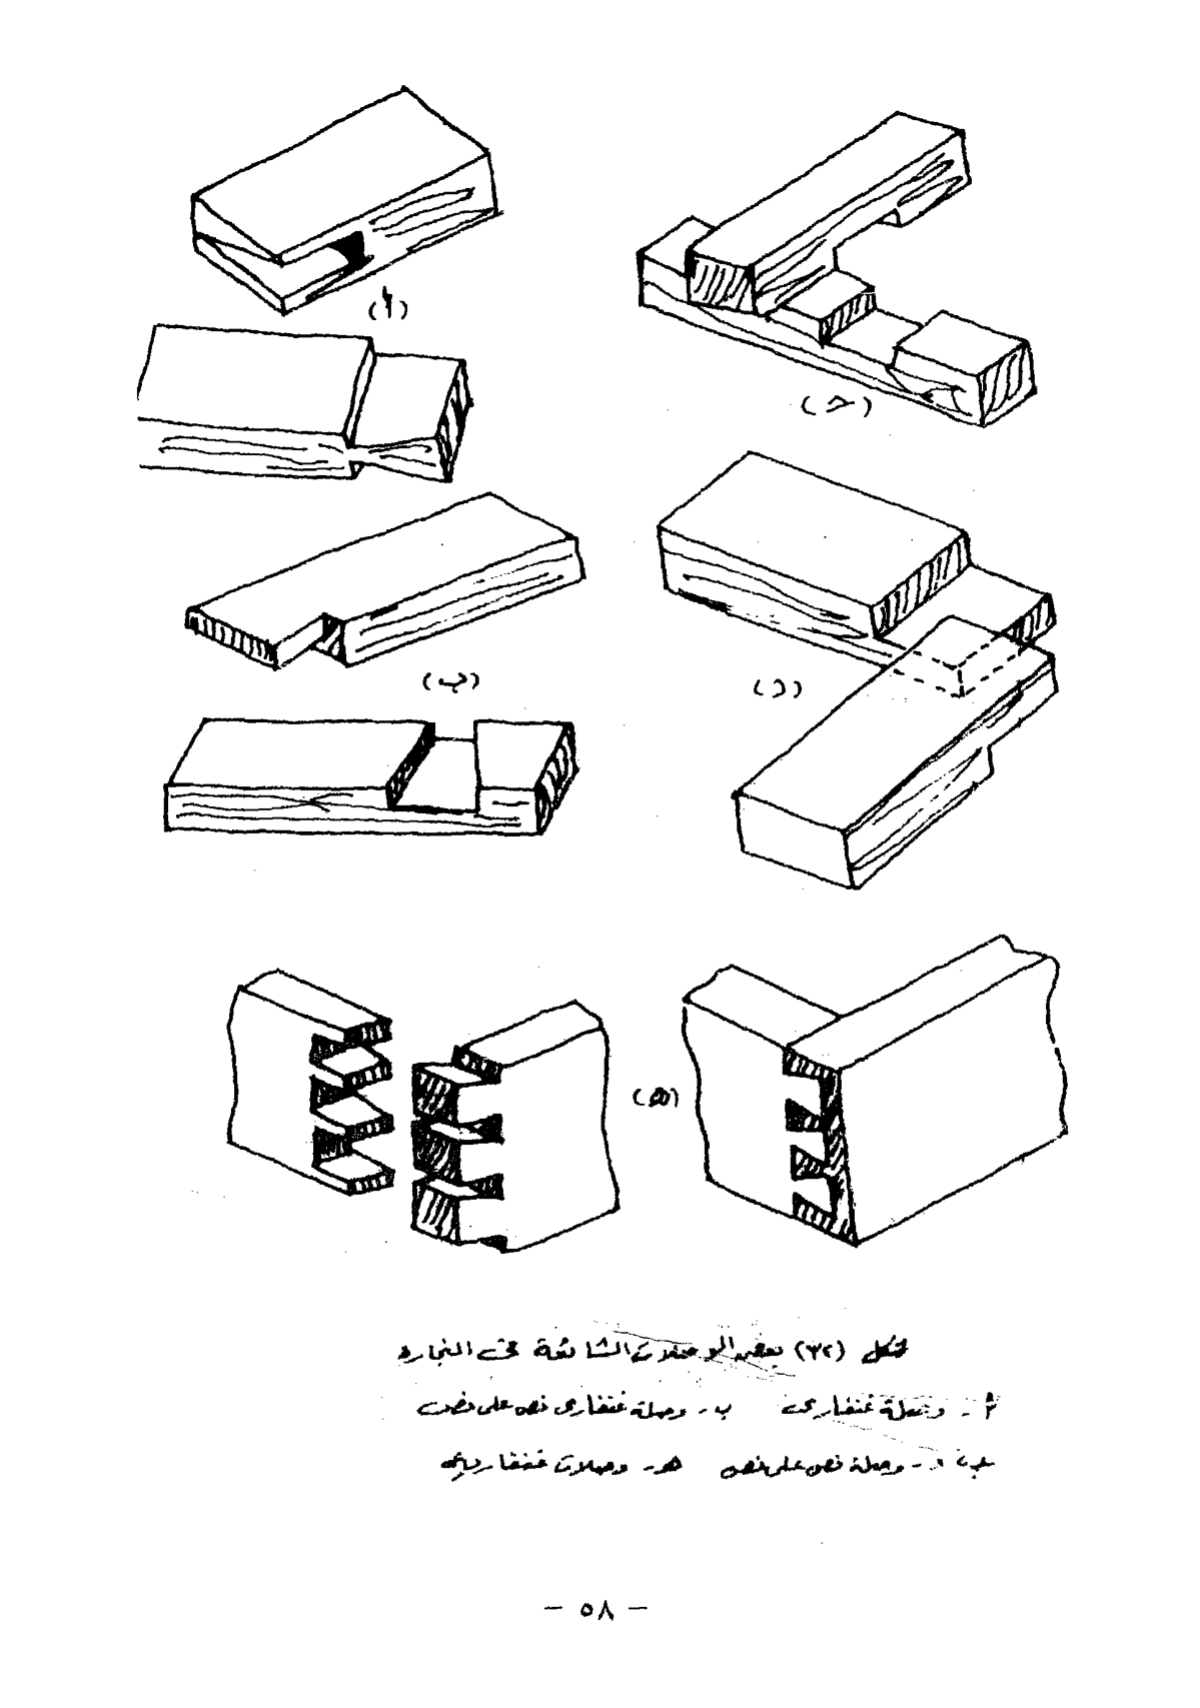 (أ)
(حـ)
(ب)
(د)
(هـ)
شكل (٣٢) بعض الوصلات الشائعة فى النجاره
أ - وصلة غنفارى ب - وصلة غنفارى نصف على نصف
د - وصلة نصف على نصف هـ - وصلات غنفاريه
- ٥٨ -